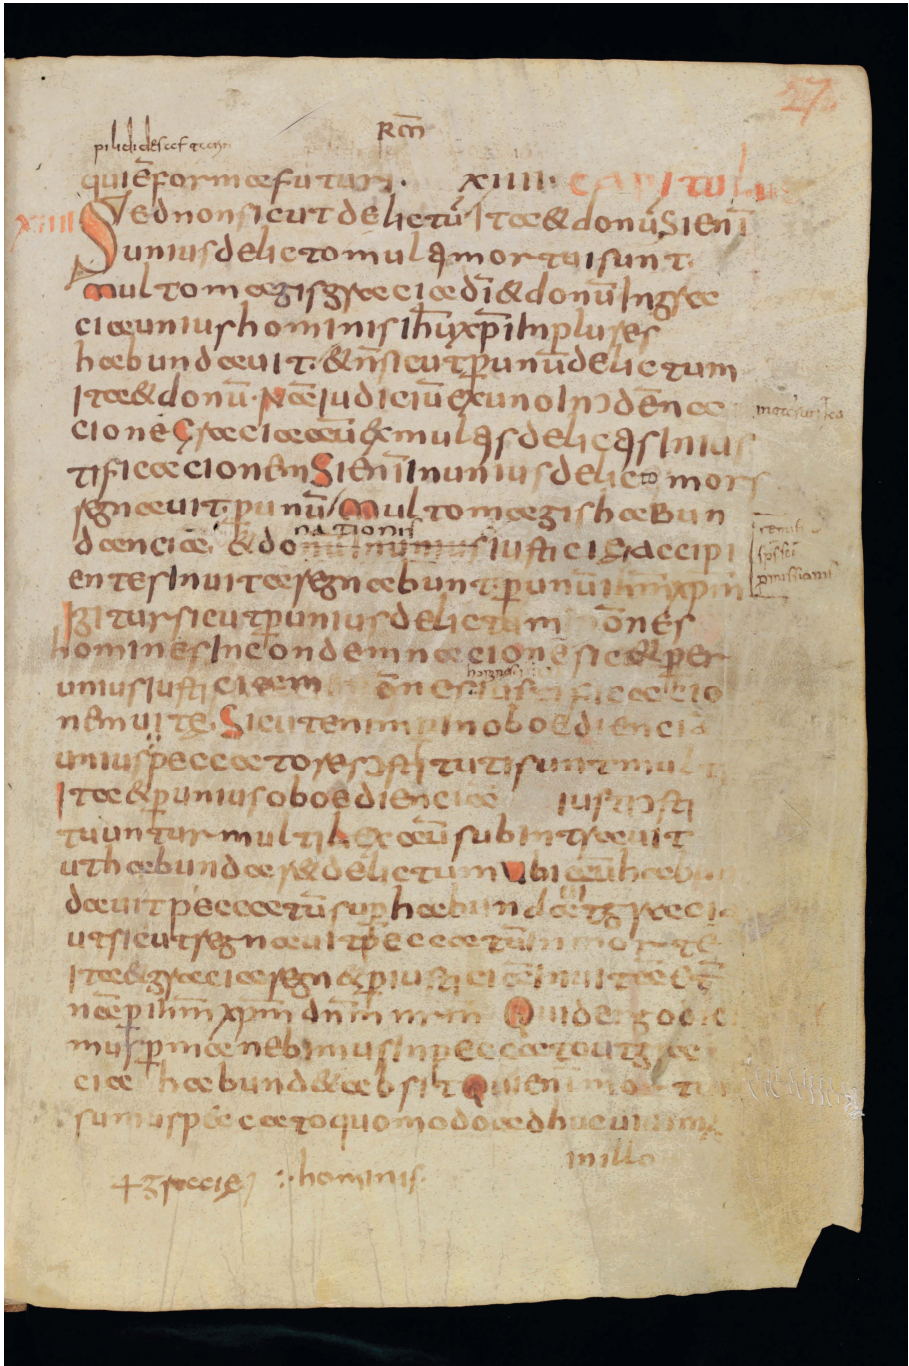 27
Rom̄
qui ē forma futuri. XIIII. CAPITUL
XIIII Sed non sicut delictū Ita & donū Si enī
unius delicto multi mortui sunt
multo magis gracia dī & donū In gra
cia unius hominis ihū xp̄i In plures
habundauit. & n̄ sicut p̄ unū delictum
Ita & donū. Nā iudiciū ex uno In ↄdēna
cionē Gracia aū ex multis delictis In ius
tificacionem Si enī In unius delicto mors
regnauit p̄ unū multo magis habun
nationis
danciā & donū In unius iusticie Accipi
entes In uita regnabunt p̄ unū ihm̄ xp̄m
Igitur sicut p̄ unius delictum In ōnes
homines In condemnacionē sic & per
unius iusticiam In ōnes iustificacio
nem uite. Sicut enim p̄ Inoboediencia
unius peccatores ↄstituti sunt multi
Ita & p̄ unius oboedienciā iusti ↄsti
tuuntur multi Lex aū sub Intrauit
ut habundar& delictum Ubi aū habun
dauit peccatū sup̄habundauit gracia
ut sicut regnauit peccatū In morte
Ita & gracia regn& p̄ iusticiā In uitā et̄
nā p̄ ihm̄ xp̄m dnm̄ nrm̄ Quid ergo dici
mus p̄manebimus In peccato ut gra
cia habund& absit Qui enī mortui
sumus peccato quomodo adhuc uiuim;
In illo
+ gracie hominis.